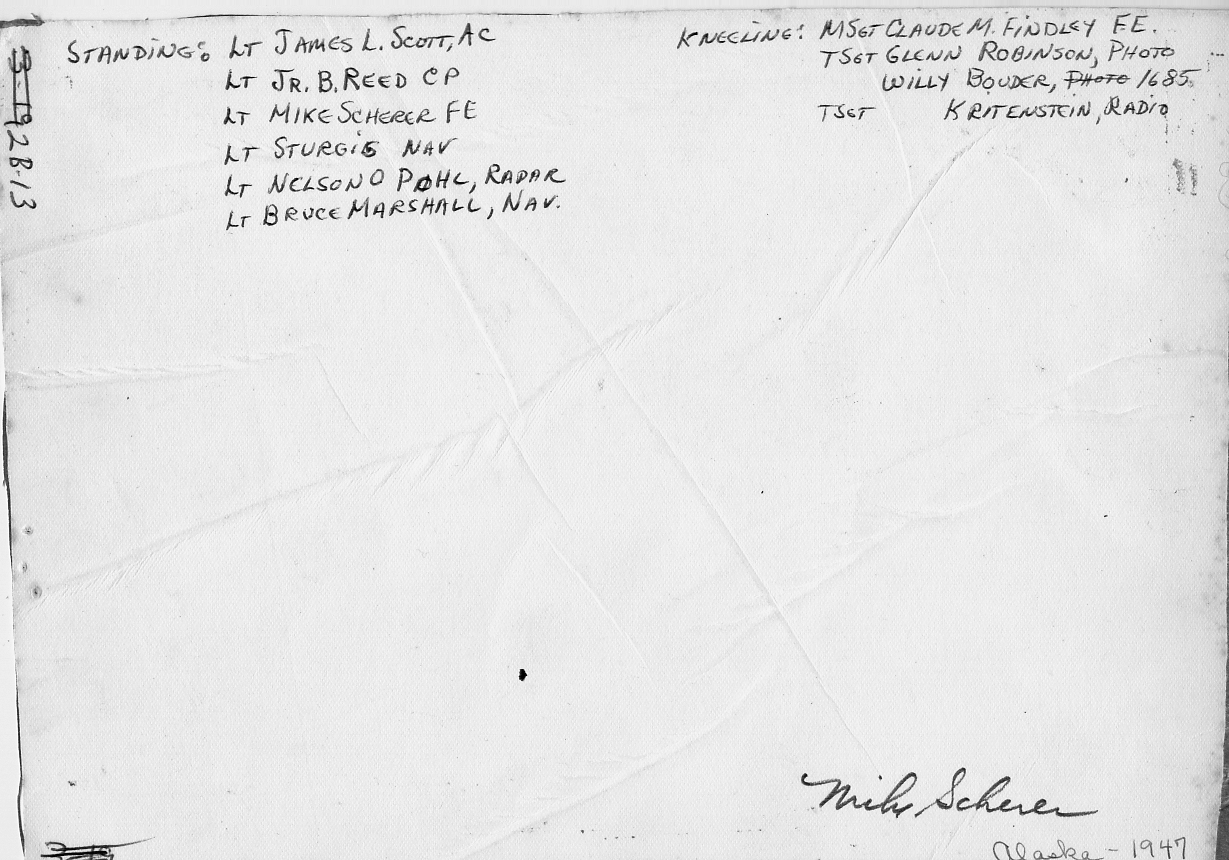 STANDING: LT JAMES L. SCOTT, AC
LT JR. B. REED CP
LT MIKE SCHERER FE
LT STURGIS NAV
LT NELSON O POHL, RADAR
LT BRUCE MARSHALL, NAV.
KNEELING: MSGT CLAUDE M. FINDLEY F.E.
TSGT GLENN ROBINSON, PHOTO
WILLY BOUDER, PHOTO 1685
TSGT KRITENSTEIN, RADIO
28-13
Mike Scherer
Alaska - 1947